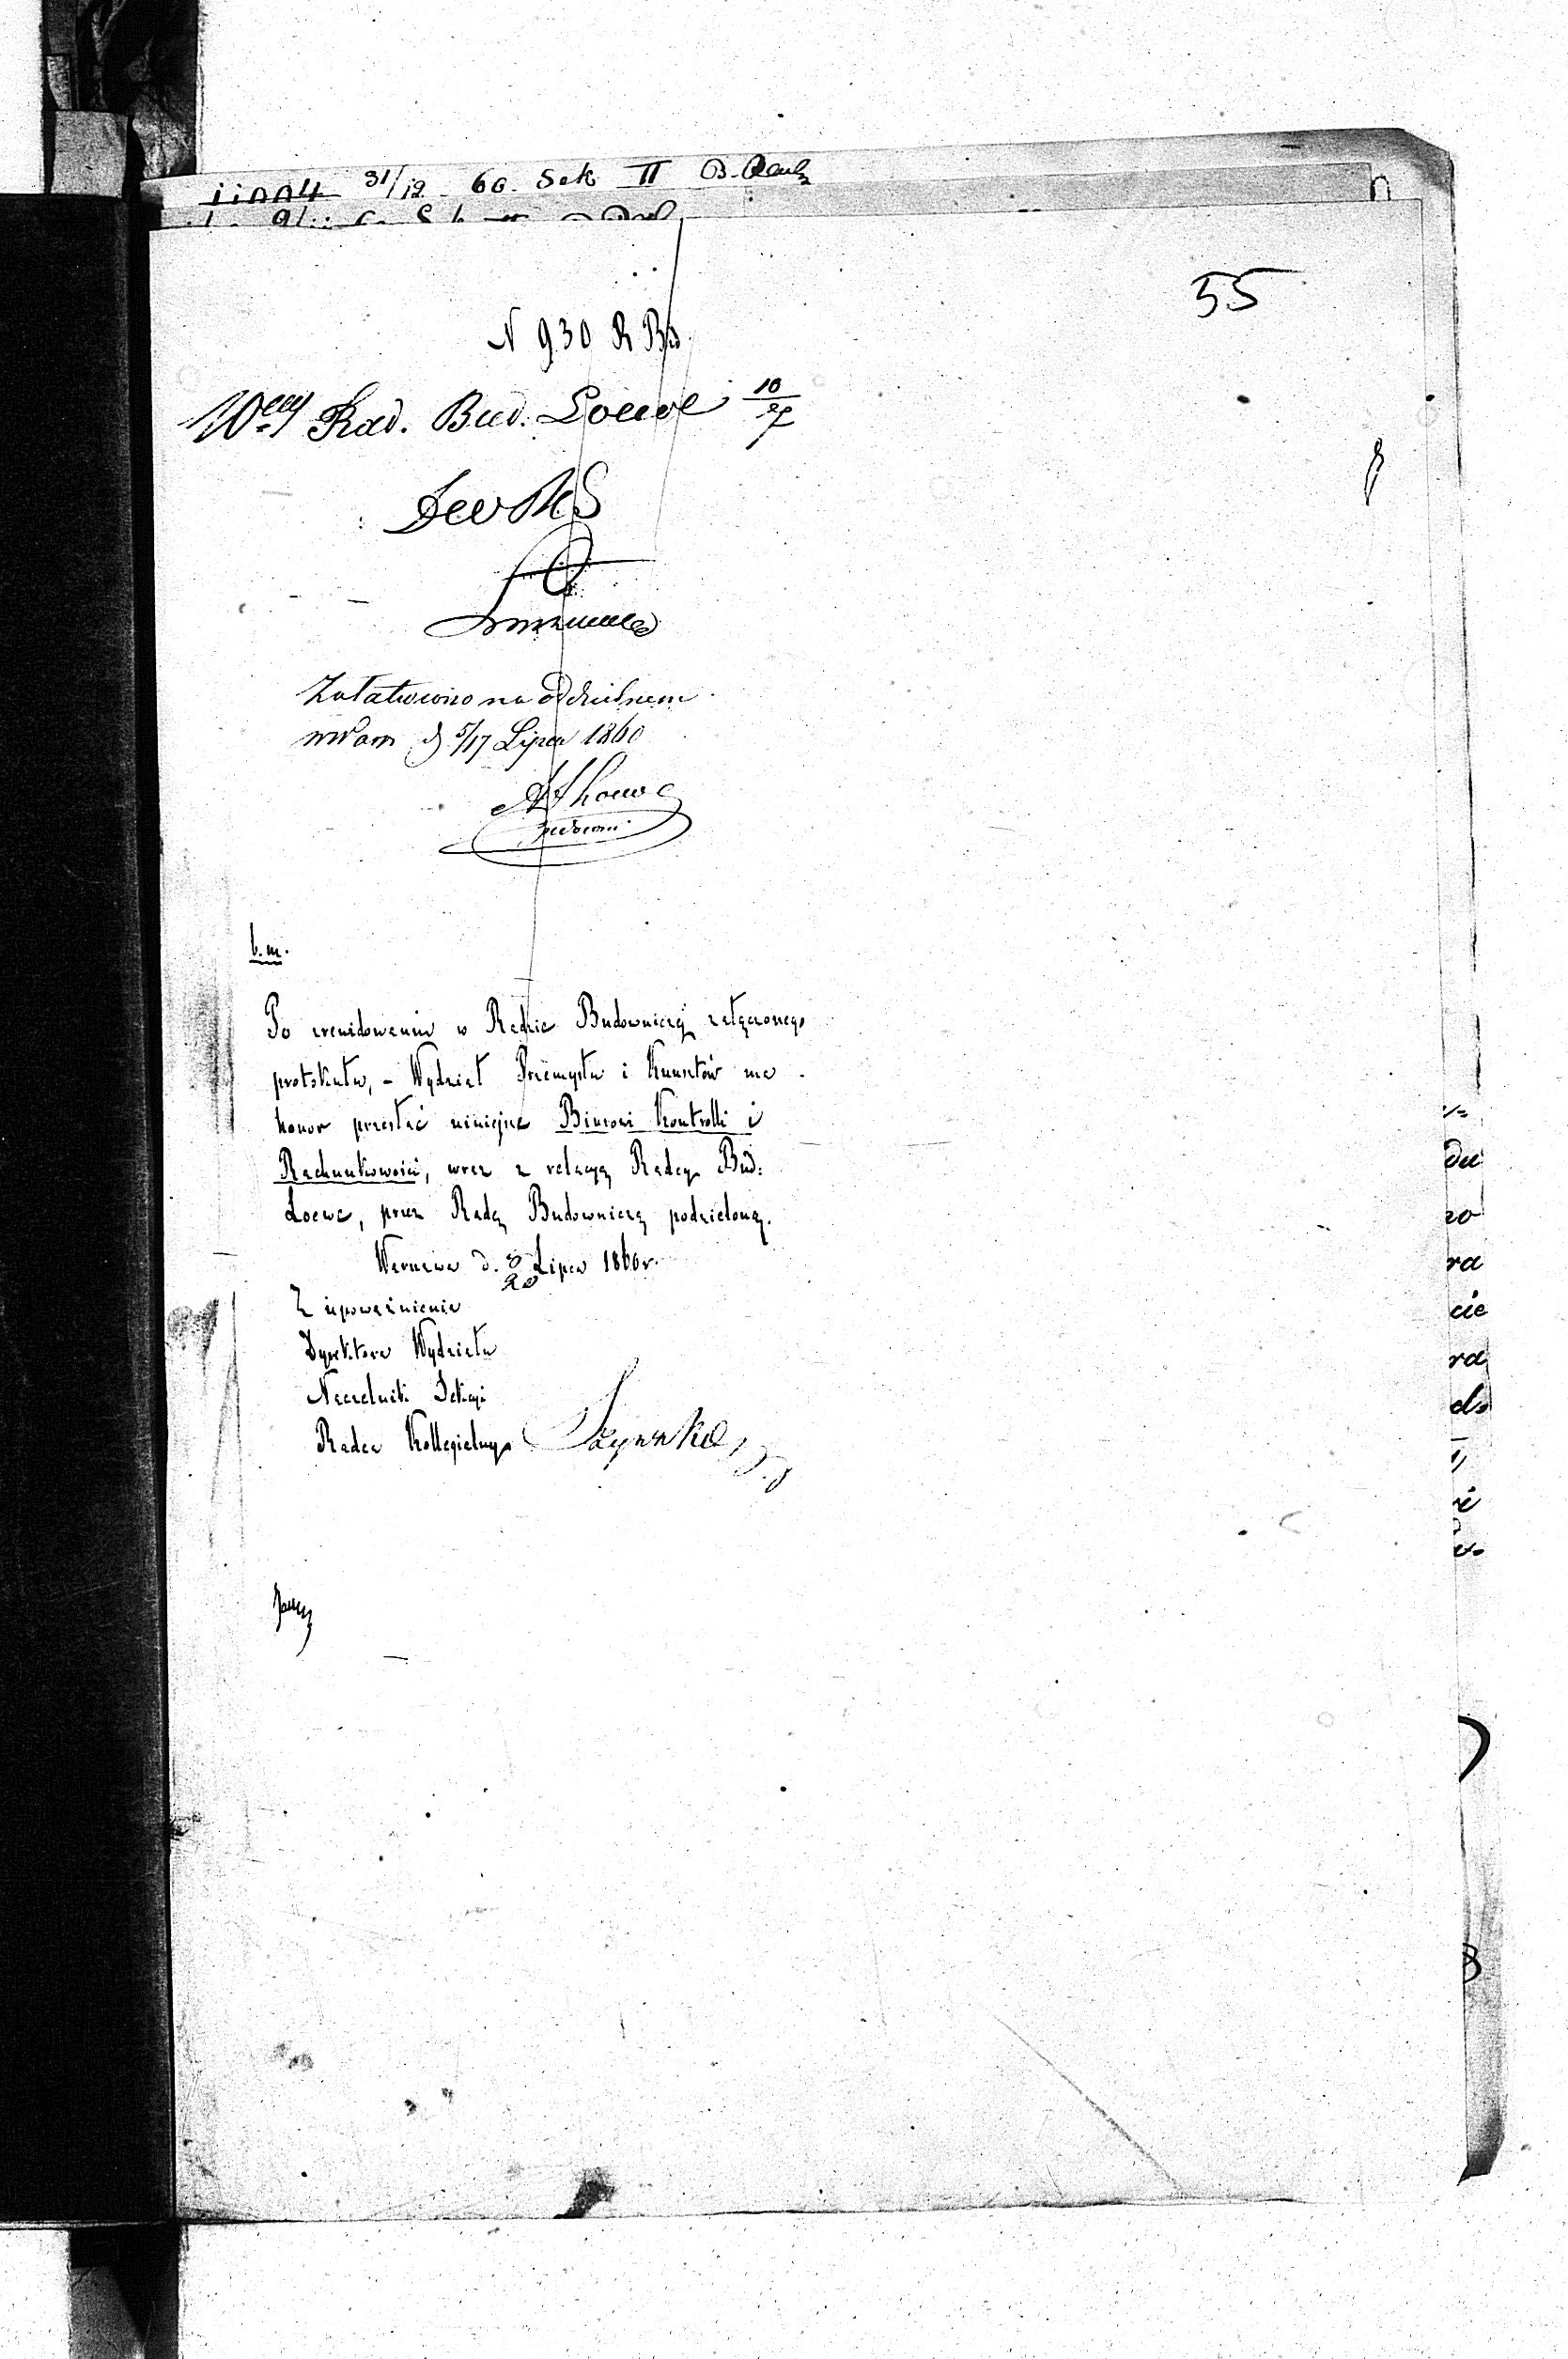 31/12 60. Sek II B.
55
N 930 R Bu.
Wny Rad. Bud. Loewe 10/27
Załatwiono na oddzielnem
d 5/17 Lipca 1860
Loewe
b. m.
Po zrewidowaniu w Radzie Budowniczej załączonego
protokułu, – Wydział Przemysłu i Kunsztów ma
honor przesłać niniejsze Biurowi Kontrolli i
Rachunkowości, wraz z relacyą Radcy Bud:
Loewe, przez Radę Budowniczą podzieloną.
Warszawa d. 8/20 Lipca 1860 r.
Z upoważnienia
Dyrektora Wydziału
Naczelnik Sekcyi
Radca Kollegialny
du
zo
ra
cie
ra
do